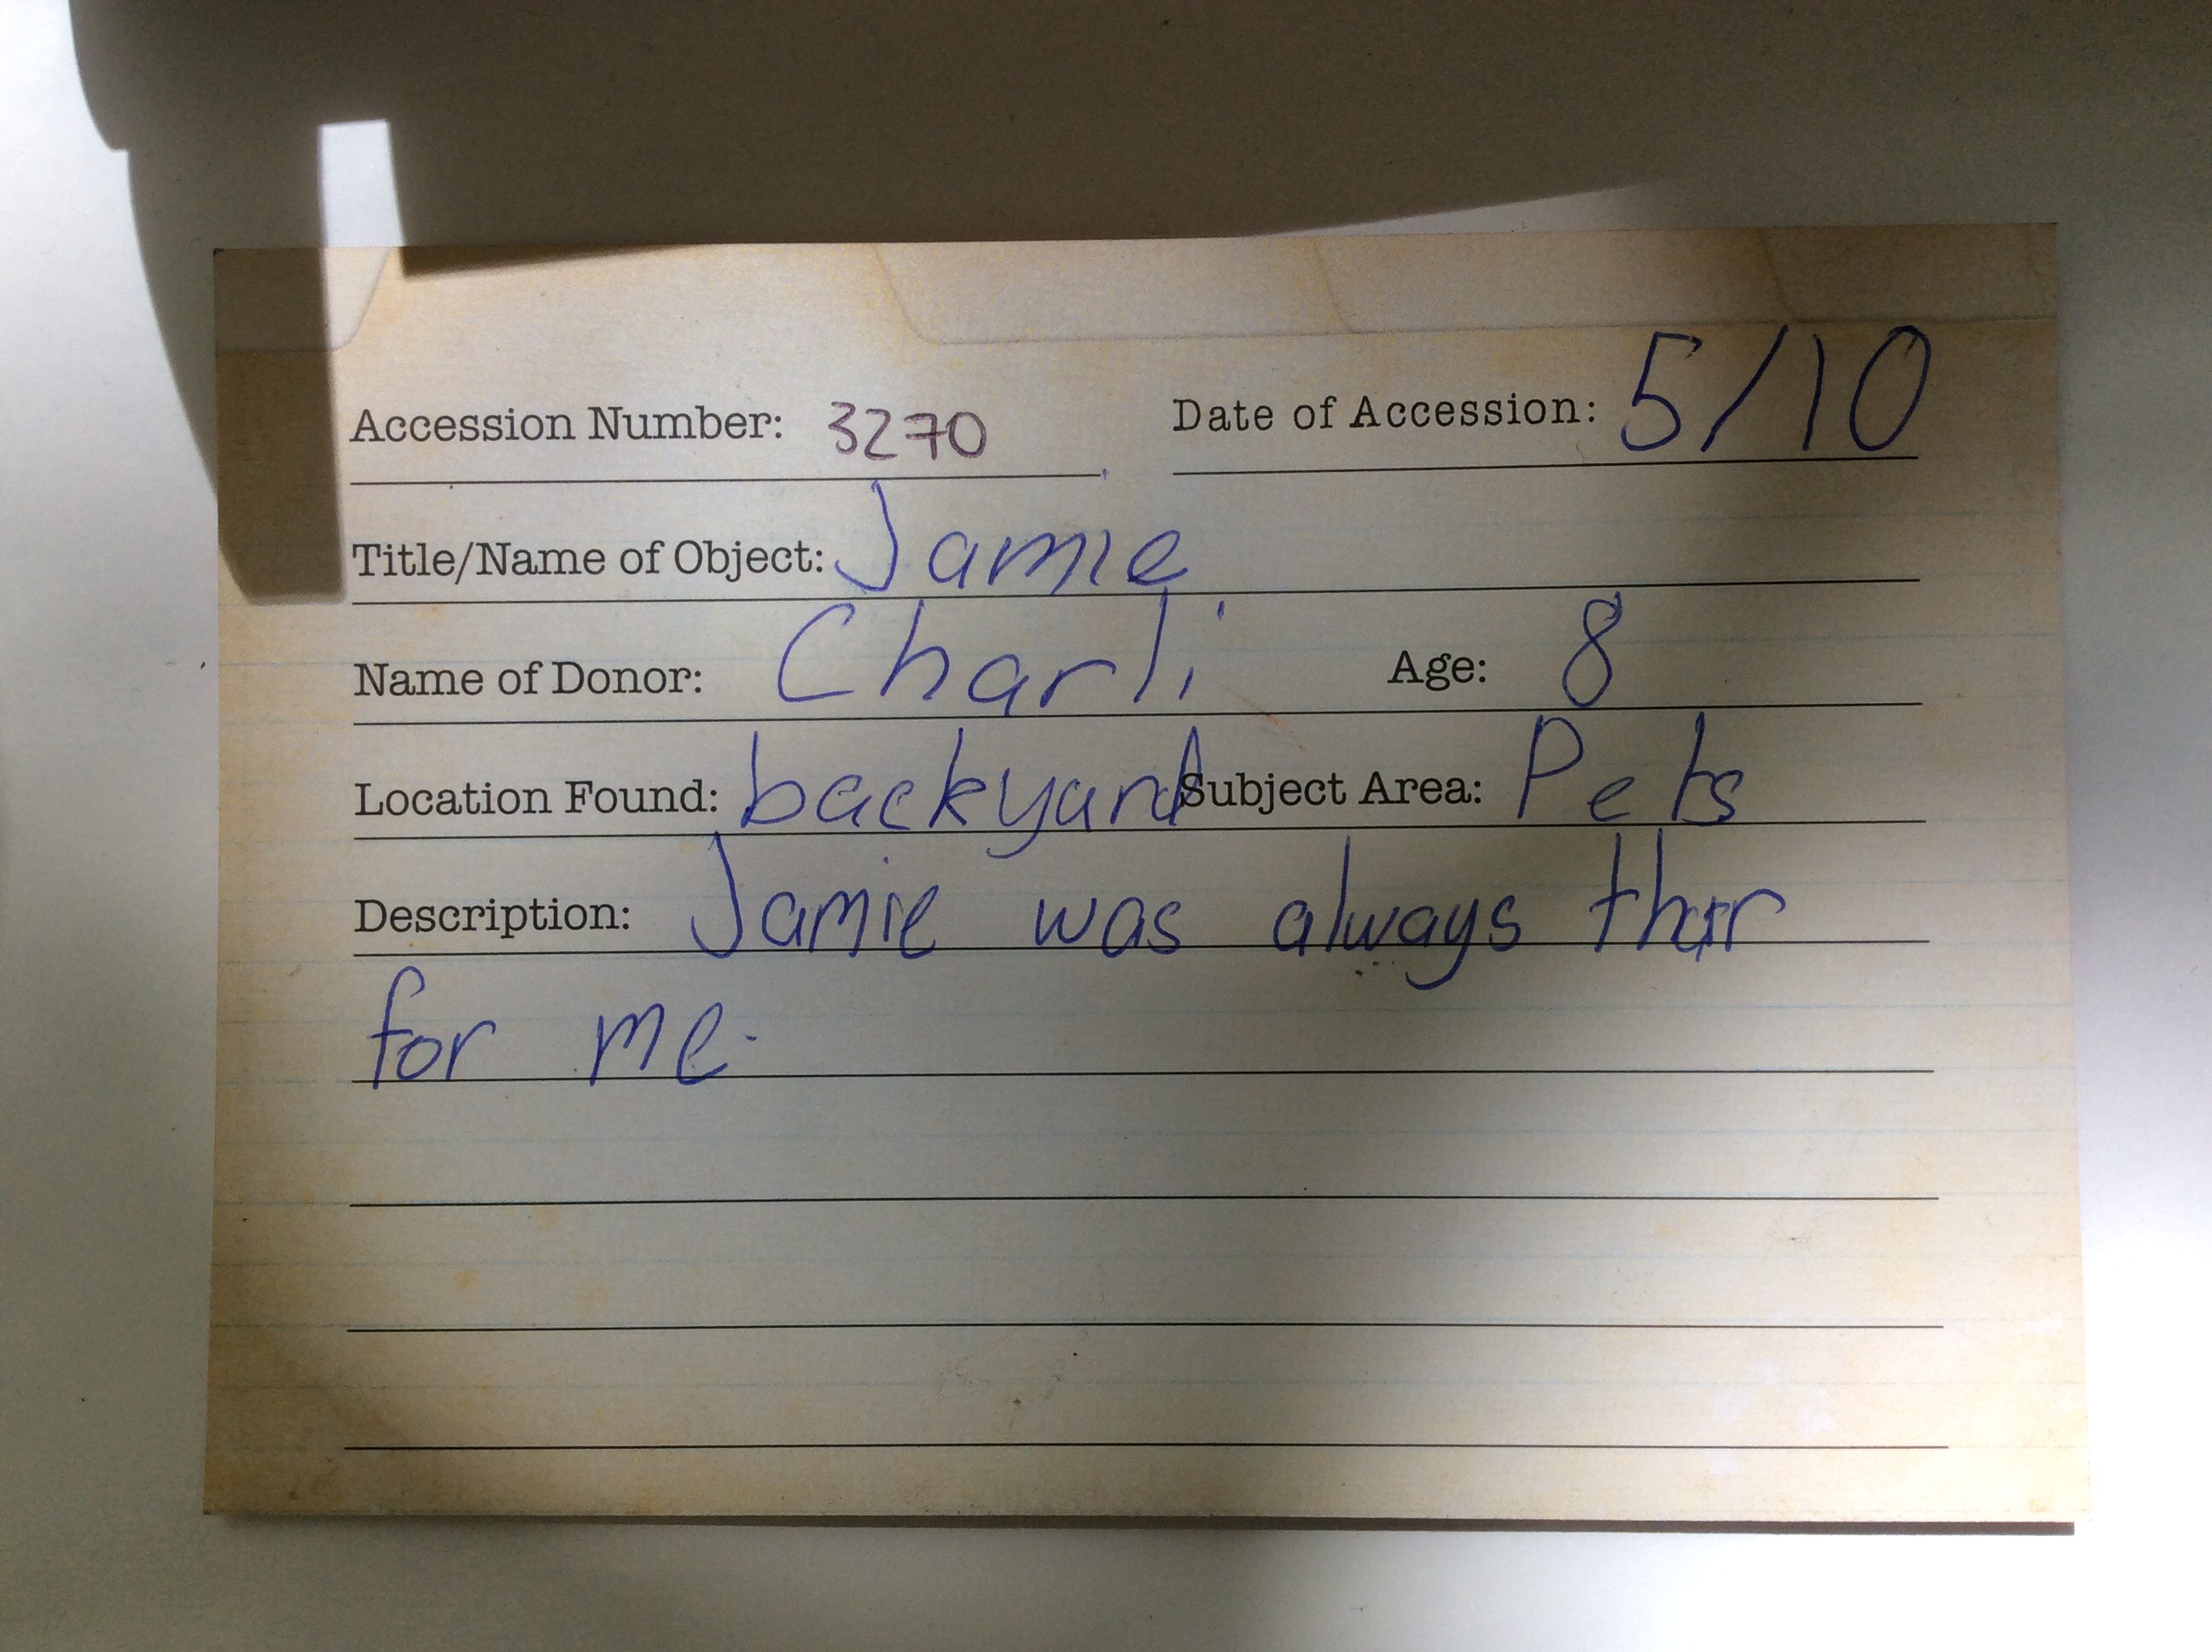 Accession Number: 3270 Date of Accession: 5/10
Title/Name of Object: Jamie
Name of Donor: Charli Age: 8
Location Found: backyard Subject Area: Pets
Description: Jamie was always thar
for me.